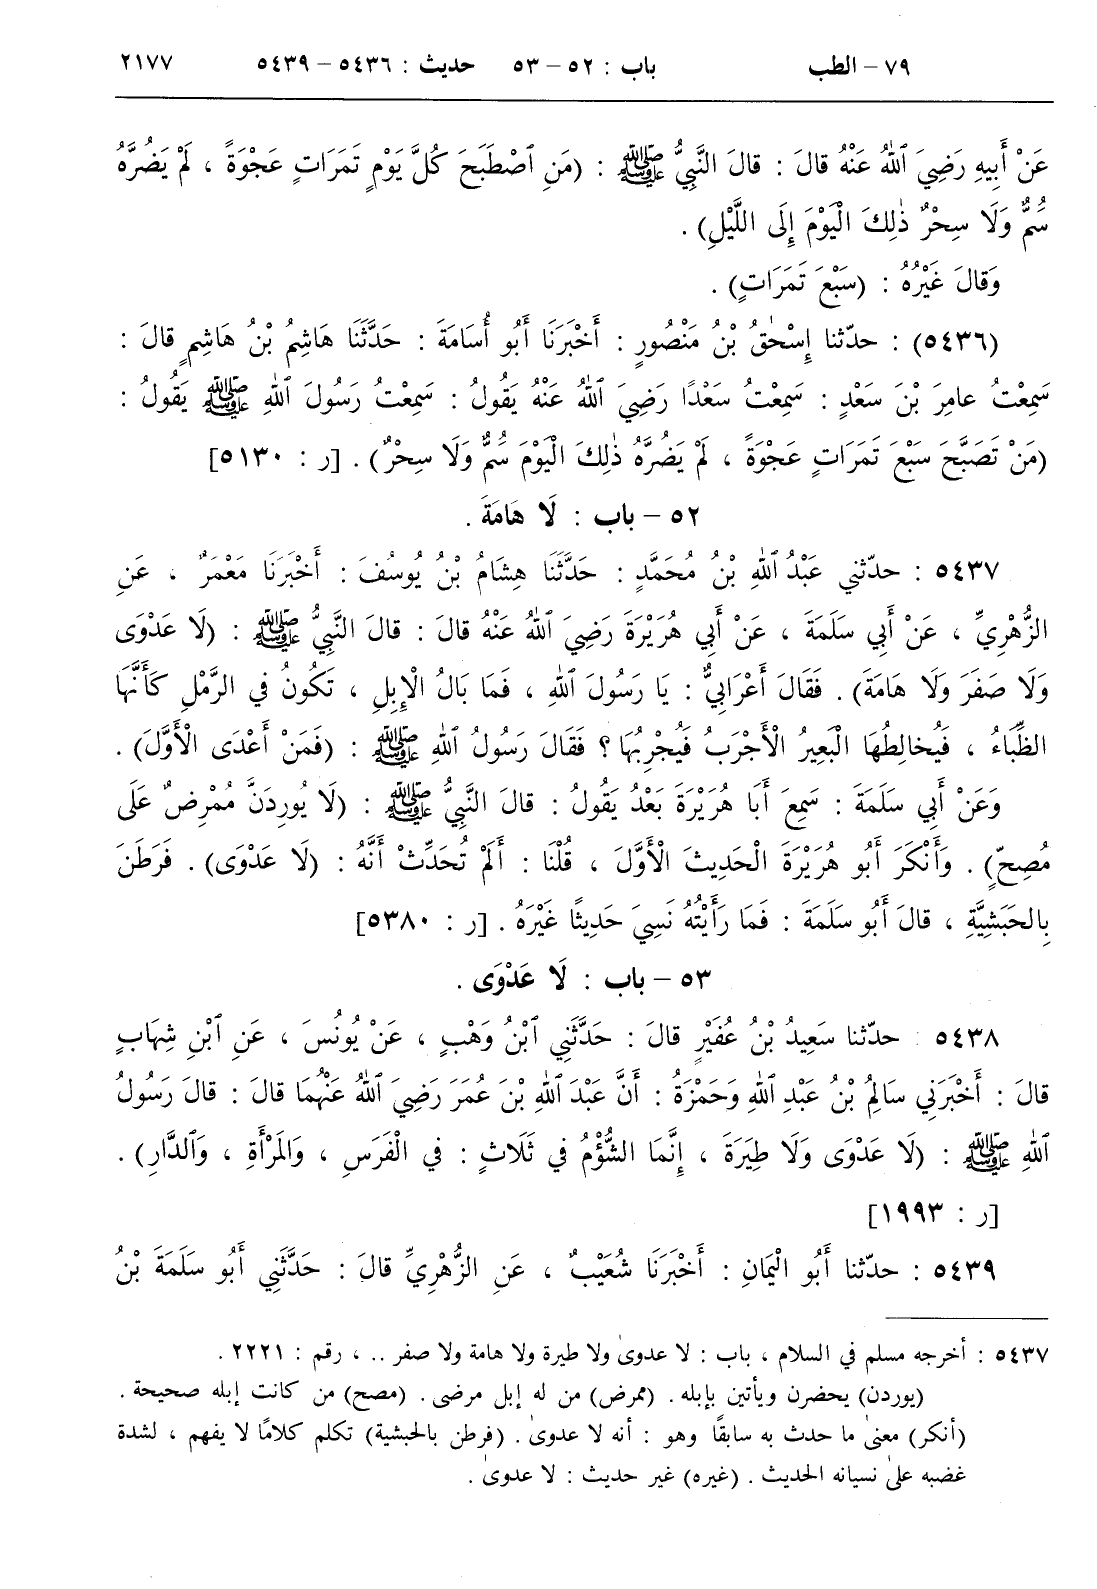 ٧٩ – الطب باب : ٥٢ – ٥٣ حديث : ٥٤٣٦ – ٥٤٣٩ ٢١٧٧
عَنْ أَبِيهِ رَضِيَ ٱللهُ عَنْهُ قالَ : قالَ النَّبِيُّ ﷺ : (مَنِ ٱصْطَبَحَ كُلَّ يَوْمٍ تَمَرَاتٍ عَجْوَةً ، لَمْ يَضُرَّهُ
سُمٌّ وَلَا سِحْرٌ ذٰلِكَ الْيَوْمَ إِلَى اللَّيْلِ) .
وَقالَ غَيْرُهُ : (سَبْعَ تَمَرَاتٍ) .
(٥٤٣٦) : حدّثنا إِسْحٰقُ بْنُ مَنْصُورٍ : أَخْبَرَنَا أَبُو أُسَامَةَ : حَدَّثَنَا هَاشِمُ بْنُ هَاشِمٍ قالَ :
سَمِعْتُ عامِرَ بْنَ سَعْدٍ : سَمِعْتُ سَعْدًا رَضِيَ ٱللهُ عَنْهُ يَقُولُ : سَمِعْتُ رَسُولَ ٱللهِ ﷺ يَقُولُ :
(مَنْ تَصَبَّحَ سَبْعَ تَمَرَاتٍ عَجْوَةً ، لَمْ يَضُرَّهُ ذٰلِكَ الْيَوْمَ سُمٌّ وَلَا سِحْرٌ) . [ر : ٥١٣٠]
٥٢ – باب : لَا هَامَةَ .
٥٤٣٧ : حدّثني عَبْدُ ٱللهِ بْنُ مُحَمَّدٍ : حَدَّثَنَا هِشَامُ بْنُ يُوسُفَ : أَخْبَرَنَا مَعْمَرٌ ، عَنِ
الزُّهْرِيِّ ، عَنْ أَبِي سَلَمَةَ ، عَنْ أَبِي هُرَيْرَةَ رَضِيَ ٱللهُ عَنْهُ قالَ : قالَ النَّبِيُّ ﷺ : (لَا عَدْوَى
وَلَا صَفَرَ وَلَا هَامَةَ) . فَقَالَ أَعْرَابِيٌّ : يَا رَسُولَ ٱللهِ ، فَمَا بَالُ الْإِبِلِ ، تَكُونُ في الرَّمْلِ كَأَنَّهَا
الظِّبَاءُ ، فَيُخالِطُهَا الْبَعِيرُ الْأَجْرَبُ فَيُجْرِبُهَا ؟ فَقَالَ رَسُولُ ٱللهِ ﷺ : (فَمَنْ أَعْدَى الْأَوَّلَ) .
وَعَنْ أَبِي سَلَمَةَ : سَمِعَ أَبَا هُرَيْرَةَ بَعْدُ يَقُولُ : قالَ النَّبِيُّ ﷺ : (لَا يُورِدَنَّ مُمْرِضٌ عَلَى
مُصِحٍّ) . وَأَنْكَرَ أَبُو هُرَيْرَةَ الْحَدِيثَ الْأَوَّلَ ، قُلْنَا : أَلَمْ تُحَدِّثْ أَنَّهُ : (لَا عَدْوَى) . فَرَطَنَ
بِالحَبَشِيَّةِ ، قالَ أَبُو سَلَمَةَ : فَمَا رَأَيْتُهُ نَسِيَ حَدِيثًا غَيْرَهُ . [ر : ٥٣٨٠]
٥٣ – باب : لَا عَدْوَى .
٥٤٣٨ : حدّثنا سَعِيدُ بْنُ عُفَيْرٍ قالَ : حَدَّثَنِي ٱبْنُ وَهْبٍ ، عَنْ يُونُسَ ، عَنِ ٱبْنِ شِهَابٍ
قالَ : أَخْبَرَنِي سَالِمُ بْنُ عَبْدِ ٱللهِ وَحَمْزَةُ : أَنَّ عَبْدَ ٱللهِ بْنَ عُمَرَ رَضِيَ ٱللهُ عَنْهُمَا قالَ : قالَ رَسُولُ
ٱللهِ ﷺ : (لَا عَدْوَى وَلَا طِيَرَةَ ، إِنَّمَا الشُّؤْمُ في ثَلَاثٍ : في الْفَرَسِ ، وَالمَرْأَةِ ، وَٱلدَّارِ) .
[ر : ١٩٩٣]
٥٤٣٩ : حدّثنا أَبُو الْيَمَانِ : أَخْبَرَنَا شُعَيْبٌ ، عَنِ الزُّهْرِيِّ قالَ : حَدَّثَنِي أَبُو سَلَمَةَ بْنُ
٥٤٣٧ : أخرجه مسلم في السلام ، باب : لا عدوىٰ ولا طيرة ولا هامة ولا صفر .. ، رقم : ٢٢٢١ .
(يوردن) يحضرن ويأتين بإبله . (ممرض) من له إبل مرضى . (مصح) من كانت إبله صحيحة .
(أنكر) معنىٰ ما حدث به سابقًا وهو : أنه لا عدوىٰ . (فرطن بالحبشية) تكلم كلامًا لا يفهم ، لشدة
غضبه علىٰ نسيانه الحديث . (غيره) غير حديث : لا عدوىٰ .